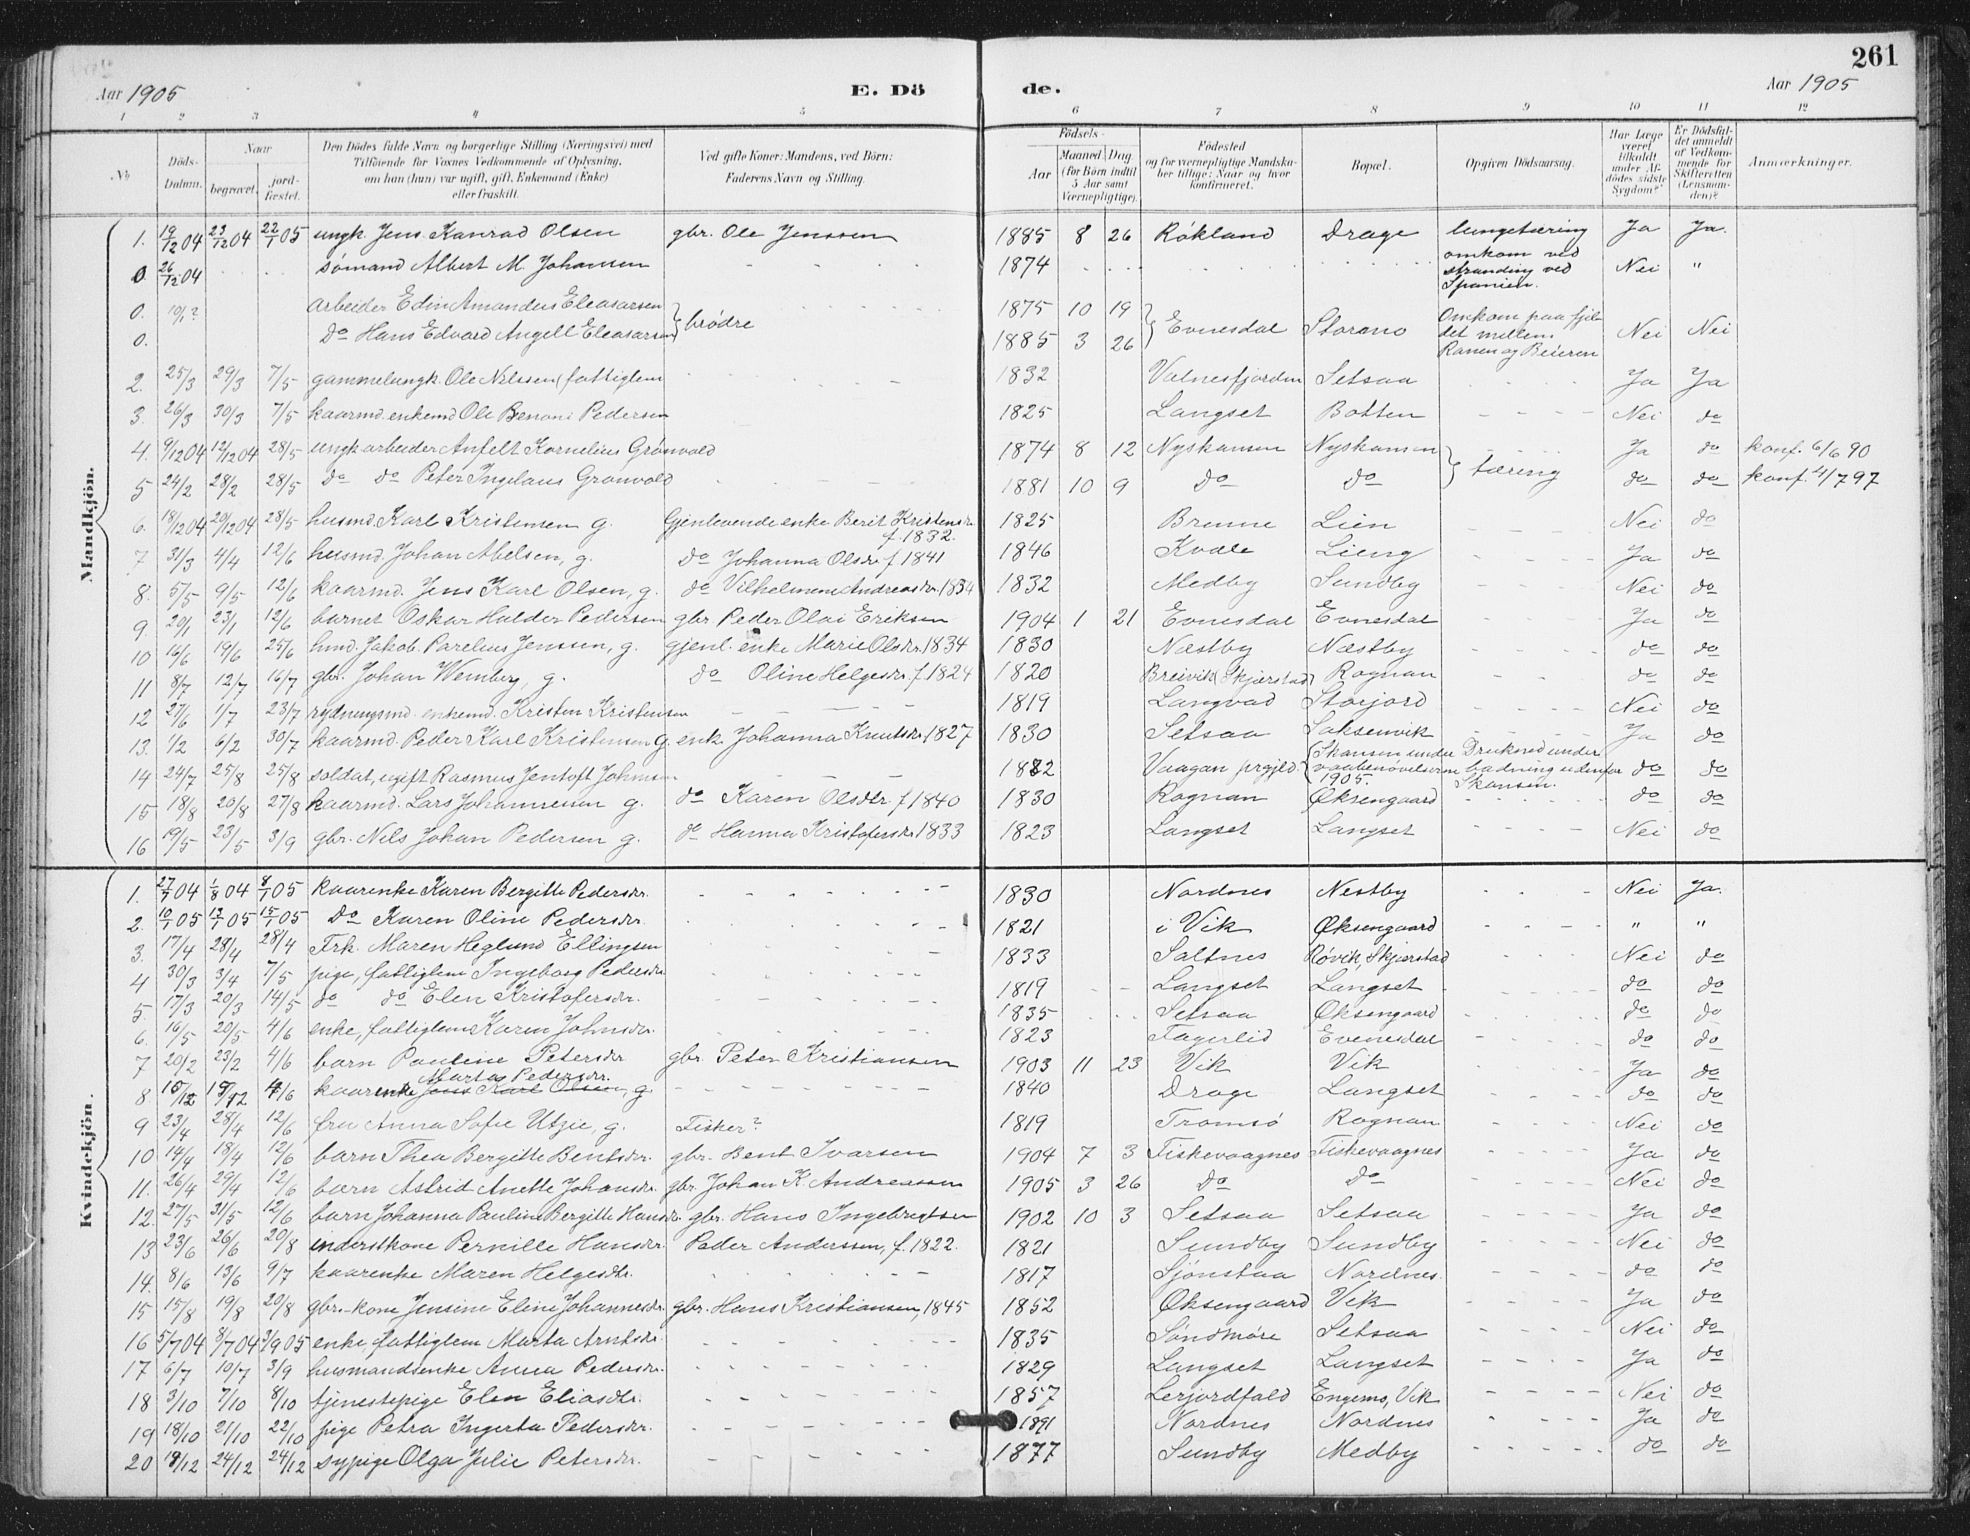 261
Aar 1905
E. Dö
de.
Aar 1905
1 2 3 4 5 6 7 8 9 10 11 12
No.
Döds-Datum.
Naar
begravet.
jord-fæstet.
Den Dödes fulde Navn og borgerlige Stilling (Næringsvei) med
Tilföiende for Voxnes Vedkommende af Oplysning,
om han (hun) var ugift, gift, Enkemand (Enke)
eller fraskilt.
Ved gifte Koner: Mandens, ved Börn:
Faderens Navn og Stilling.
Födsels-
Aar
Maaned
Dag
(for Börn indtil
5 Aar samt
Værnepligtige).
Födested
og for værnepligtige Mandska-
ber tillige: Naar og hvor
konfirmeret.
Bopæl.
Opgiven Dödsaarsag.
Har Læge
været
tilkaldt
under Af-
dödes sidste
Sygdom?
Er Dödsfal-
det anmeldt
af Vedkom-
mende for
Skifteretten
(Lensman-
den)?
Anmærkninger.
Mandkjön.
1. 19/12 04 23/12 04 22/1 05 ungk. Jens Konrad Olsen gbr. Ole Jenssen 1885 8 26 Røkland Drage lungetæring Ja Ja.
0. 26/12 04 sømand Albert M. Johansen 1874 omkom ved stranding ved Spanien. Nei "
0. 10/1? arbeider Edin Amandus Eleasarsen } brødre 1875 10 19 } Evnesdal Stormo Omkom paa fjel-
0. do Hans Edvard Angell Eleasarsen 1885 3 26 det mellem Ranen og Beieren Nei Nei
2. 25/3 29/3 7/5 gammelungk. Ole Nilssen (fattiglem 1832 Valnesfjorden Setsaa Ja Ja
3. 26/3 30/3 7/5 kaarmd. enkemd Ole Benoni Pedersen 1825 Langset Botten Nei do
4. 9/12 04 12/12 04 28/5 ungk arbeider Anfelt Kornelius Grønvold 1874 8 12 Nyskansen Nyskansen } tæring Ja do konf. 6/6 90
5 24/2 28/2 28/5 do do Peter Ingelaus Grønvold 1881 10 9 do do do do konf. 4/7 97
6. 18/12 04 20/12 04 28/5 husmd. Karl Kristensen g. Gjenlevende enke Berit Kristensdr. f. 1832. 1825 Brenne Lien Nei do
7 31/3 4/4 12/6 husmd. Johan Abelsen, g. do Johanna Olsdr f 1841 1846 Kvæle Lieng Ja do
8. 5/5 9/5 12/6 kaarmd. Jens Karl Olsen, g. do Vilhelmine Andreasdr. 1834 1832 Medby Sundby Nei do
9. 20/1 23/1 12/6 barnet Oskar Halder Pedersen gbr Peder Olai Eriksen 1904 1 21 Evnesdal Evnesdal Ja do
10 16/6 19/6 25/6 hmd. Jakob Parelius Jenssen, g. gjenl. enke Marie Olsdr. 1834 1830 Næstby Næstby do do
11 8/7 12/7 16/7 gbr. Johan Wemberg, g. do Oline Helgesdr. f. 1824 1820 Breivik (Skjærstad) Rognan do do
12 27/6 1/7 23/7 rydningsmd. enkemd. Kristen Kristensen 1819 Langvad Storjord Nei do
13. 1/2 6/2 30/7 kaarmd. Peder Karl Kristensen g. enk. Johanna Knutsdr. 1827 1830 Setsaa Saksenvik Ja do
14 24/7 25/8 25/8 soldat, ugift Rasmus Jentoft Johnsen 1882 Vaagan prgjld. (Skansen under vaabenøvelserne 1905. Druknede under badning udenfor Skansen. do do
15 18/8 20/8 27/8 kaarmd. Lars Johannesen g. do Karen Olsdtr f 1840 1830 Rognan Øksengaard do do
16 19/5 23/5 3/9 gbr. Nils Johan Pedersen g. do Hanna Kristofersdr. 1833 1823 Langset Langset Nei do
Kvindekjön.
1. 27/7 04 1/8 04 8/1 05 kaarenke Karen Bergitte Pedersdr. 1830 Nordnes Nestby Nei Ja.
2. 10/1 05 13/1 05 15/1 05 do Karen Oline Pedersdr. 1821 i Vik Øksengaard " "
3. 17/4 28/4 28/4 Frk. Maren Heglund Ellingsen 1833 Saltnes Røvik, Skjerstad Nei do
4 30/3 3/4 7/5 pige, fattiglem Ingeborg Pedersdr 1819 Langset Langset do do
5. 17/3 20/3 14/5 do do Elen Kristofersdr. 1835 Setsaa Øksengaard do do
6. 16/5 20/5 4/6 enke, fattiglem Karen Johnsdr. 1823 Fagerlid Evenesdal do do
7 20/2 23/2 4/6 barn Pauline Petersdr gbr. Peter Kristiansen 1903 11 23 Vik Vik Ja do
Marta Pedersdr.
8. 10/12 15/12 4/6 kaarenke Jens Karl Olsen, g 1840 Drage Langset do do
9 23/4 28/4 12/6 fru Anna Sofie Utzie, g. Fisker? 1819 Tromsø Rognan Nei do
10 14/4 18/4 12/6 barn Thea Bergitte Bentsdr. gbr. Bent Ivarsen 1904 7 3 Fiskevaagnes Fiskevaagnes Ja do
11. 26/4 29/4 12/6 barn Astrid Anette Johansdr. gbr. Johan K. Andreassen 1905 3 26 do do Nei do
12. 27/5 31/5 12/6 barn Johanna Pauline Bergitte Hansdr. gbr. Hans Ingebrigtsen 1902 10 3 Setsaa Setsaa Ja do
13 23/6 26/6 20/8 inderstkone Pernille Hansdr. Peder Anderssen, f. 1822. 1821 Sundby Sundby Nei do
14. 8/6 13/6 9/7 kaarenke Maren Helgesdtr. 1817 Sjønstaa Nordnes. do do
15 15/8 19/8 20/8 gbr.-kone Jensine Eline Johannesdr. gbr. Hans Kristiansen, 1845 1852 Øksengaard Vik Ja do
16 5/7 04 8/7 04 3/9 05 enke, fattiglem Marta Arntsdr. 1835 Søndmøre Setsaa Nei do
17 6/7 10/7 3/9 husmandsenke Anna Pedersdr. 1829 Langset Langset Ja do
18 3/10 7/10 8/10 tjenestepige Elen Eliasdtr. 1857 Lerjordfald Engems, Vik Nei do
19 18/10 21/10 22/10 pige Petra Ingerta Pedersdr. 1891 Nordnes Nordnes Ja do
20 18/12 24/12 24/12 sypige Olga Julie Petersdr. 1877 Sundby Medby do do